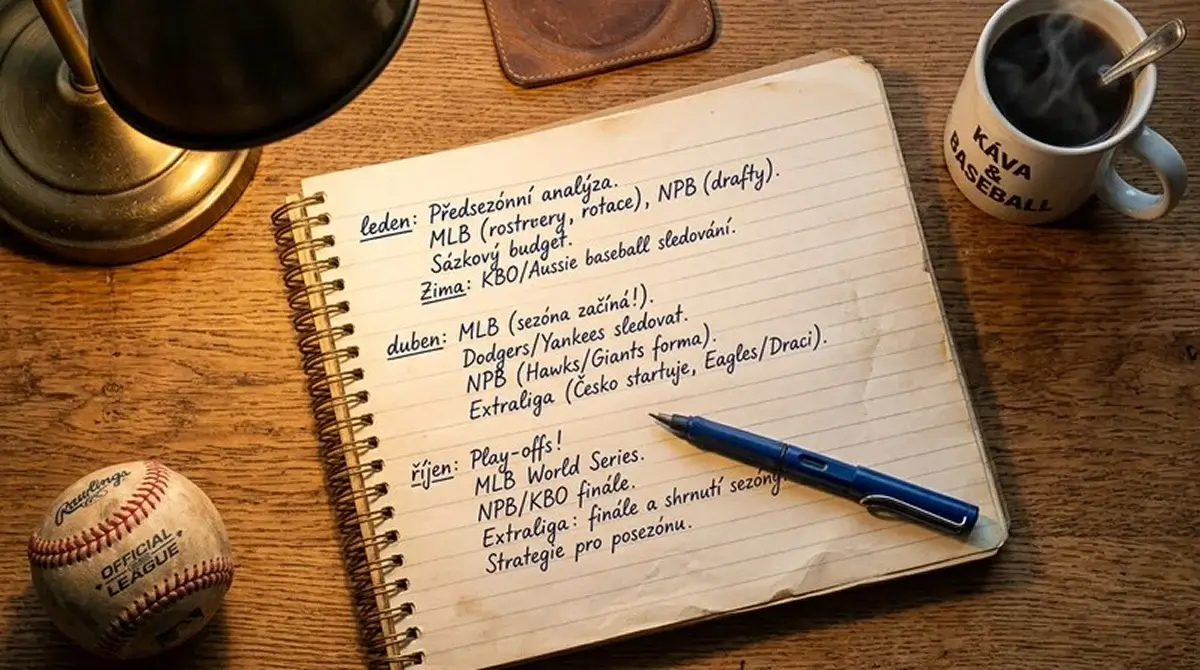 leden: Předsezónní analýza.
MLB (rostrvery, rotace), NPB (drafty).
Sázkový budget.
Zima: KBO/Aussie baseball sledování.
duben: MLB (sezóna začíná!).
Dodgers/Yankees sledovat.
NPB (Hawks/Giants forma).
Extraliga (Česko startuje, Eagles/Draci).
říjen: Play-offs!
MLB World Series.
NPB/KBO finále.
Extraliga: finále a shrnutí sezóny
Strategie pro posezónu.
KÁVA
&
BASEBALL
Rawlings
OFFICIAL
LEAGUE